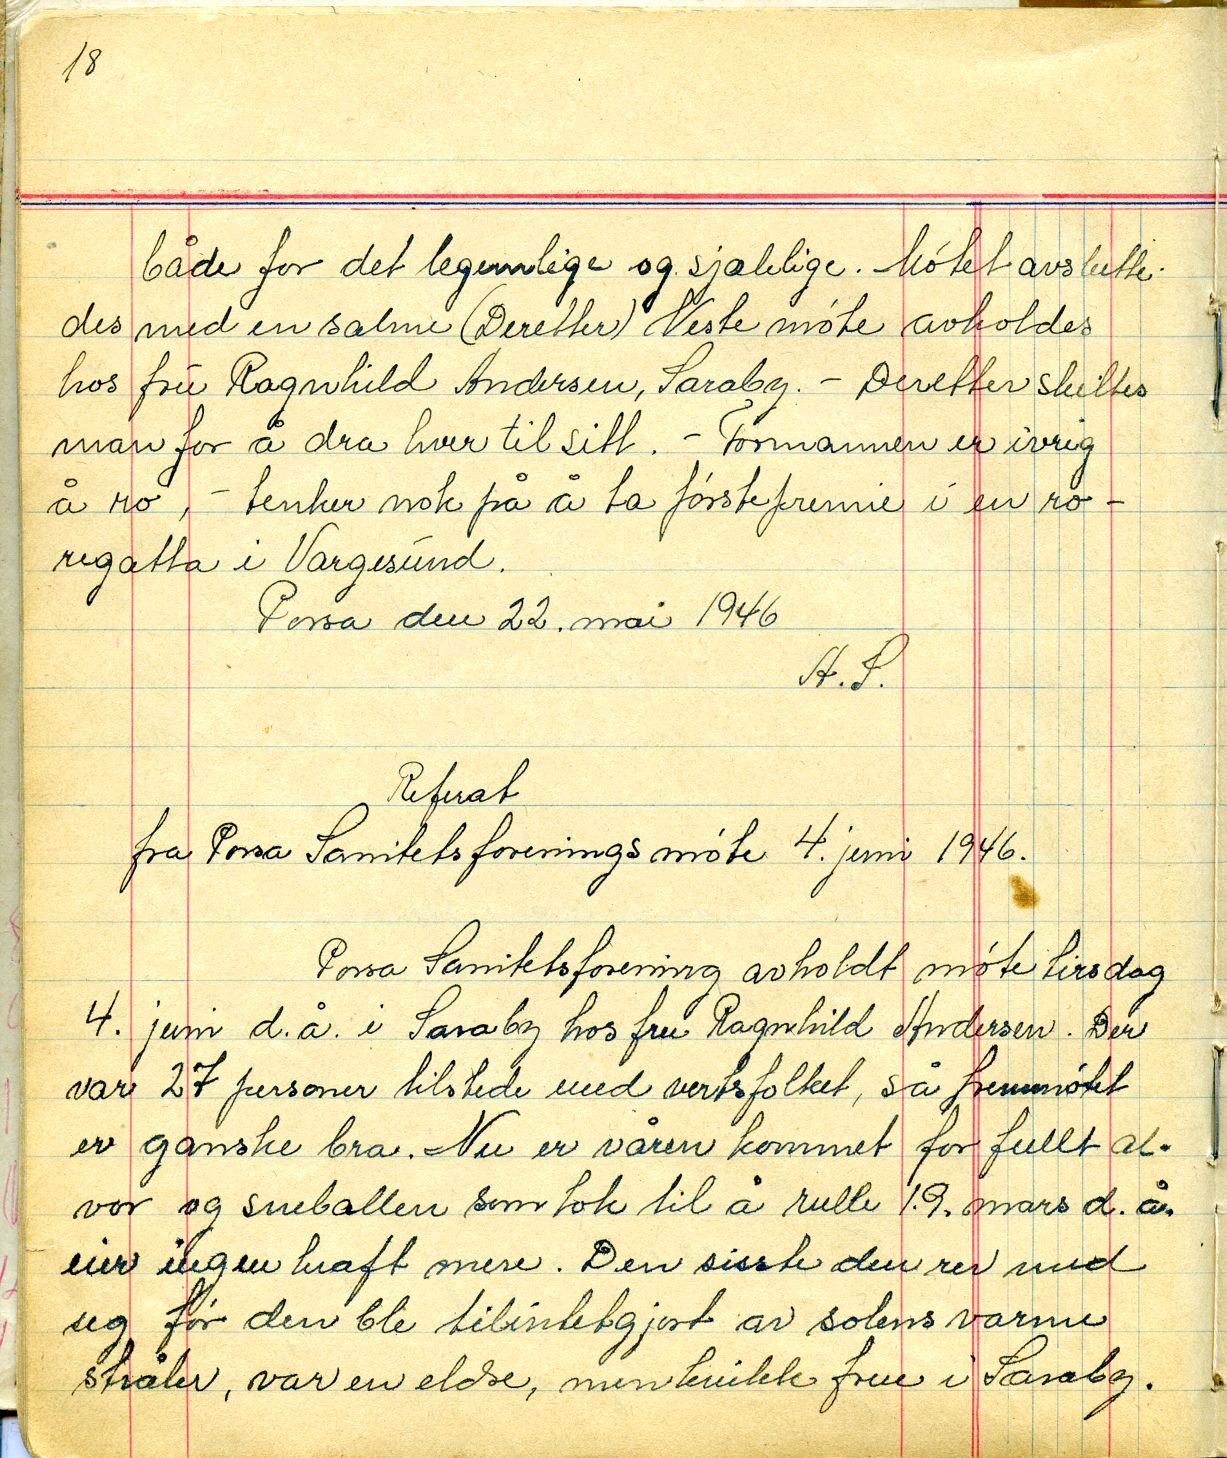 18
både for det legemlige og sjælelige. Møtet avslutte-
des med en salme (Deretter) Neste møte avholdes
hos frú Ragnhild Andersen, Saraby. – Deretter skiltes
man for å dra hver til sitt. – Formannen er ivrig
å ro, – tenker nok på å ta førstepremie i en ro-
regatta i Vargesúnd.
Porsa den 22. mai 1946
A. S.
Referat
fra Porsa Sanitetsforenings møte 4. juni 1946.
Porsa Sanitetsforening avholdt møte tirsdag
4. juni d.å. i Saraby hos fru Ragnhild Andersen. Der
var 27 personer tilstede med vertsfolket, så fremmøtet
er ganske bra. Nu er våren kommet for fullt al-
vor og sneballen som tok til å rulle 19. mars d.å.
eier ingen kraft mere. Den sisste den rev med
seg før den ble tilintetgjort av solens varme
stråler, var en eldre, men kvikk frue i Saraby.